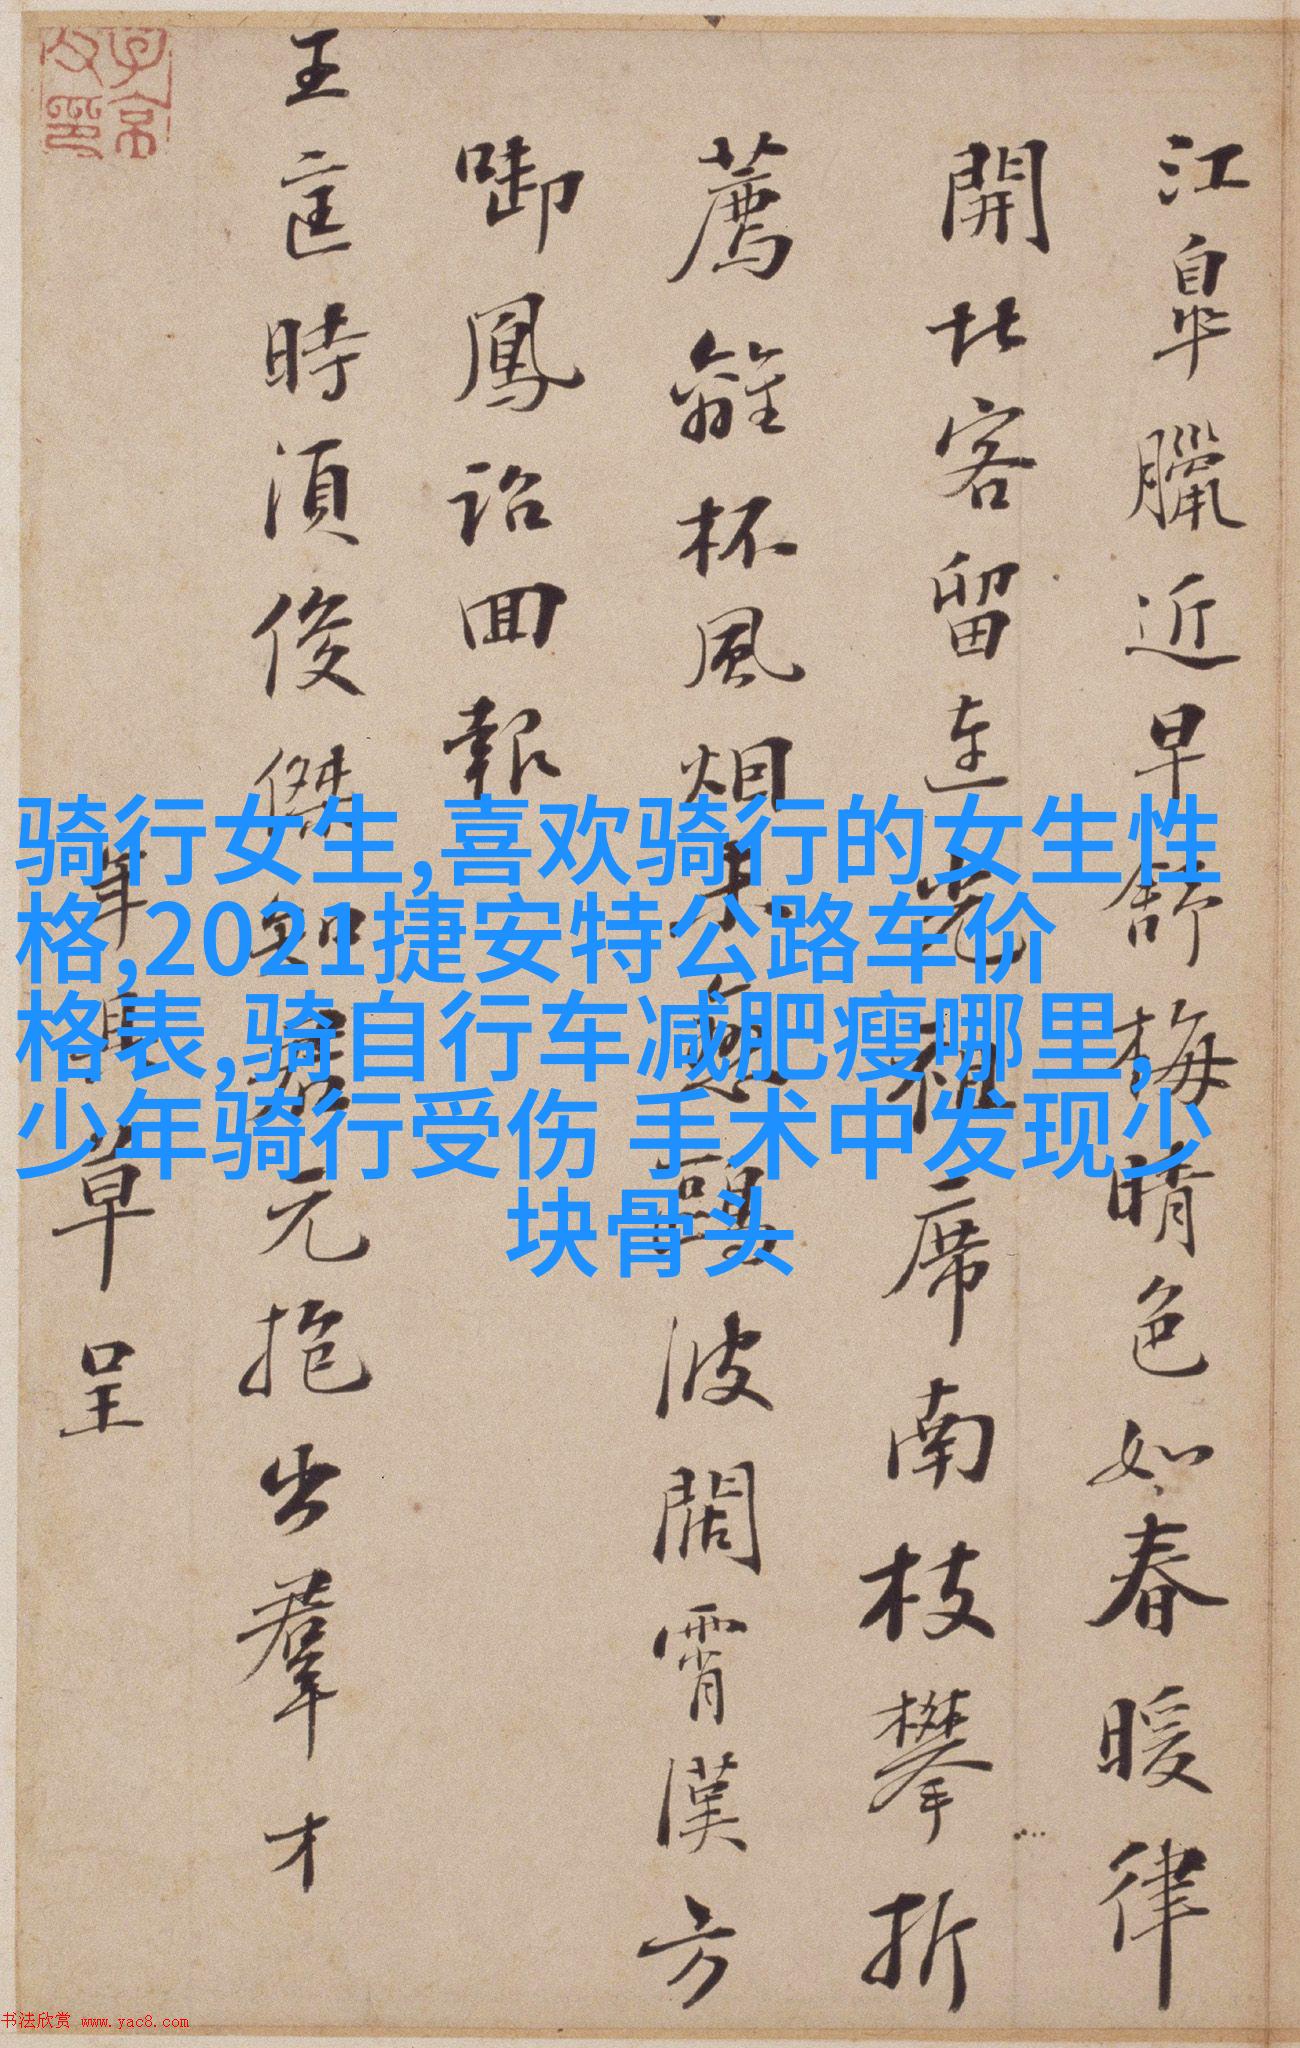 江臯臘近早舒梅晴色如春暖律
開北客留連光祖席南枝攀折
薦離杯風烟未無鷗波闊霄漢方
啣鳳詔回報
王定時須俊傑知君元抱出羣才
年月草呈
骑行女生,喜欢骑行的女生性
格,2021捷安特公路车价
格表,骑自行车减肥瘦哪里,
少年骑行受伤 手术中发现少
块骨头
书法欣赏 www.yac8.com